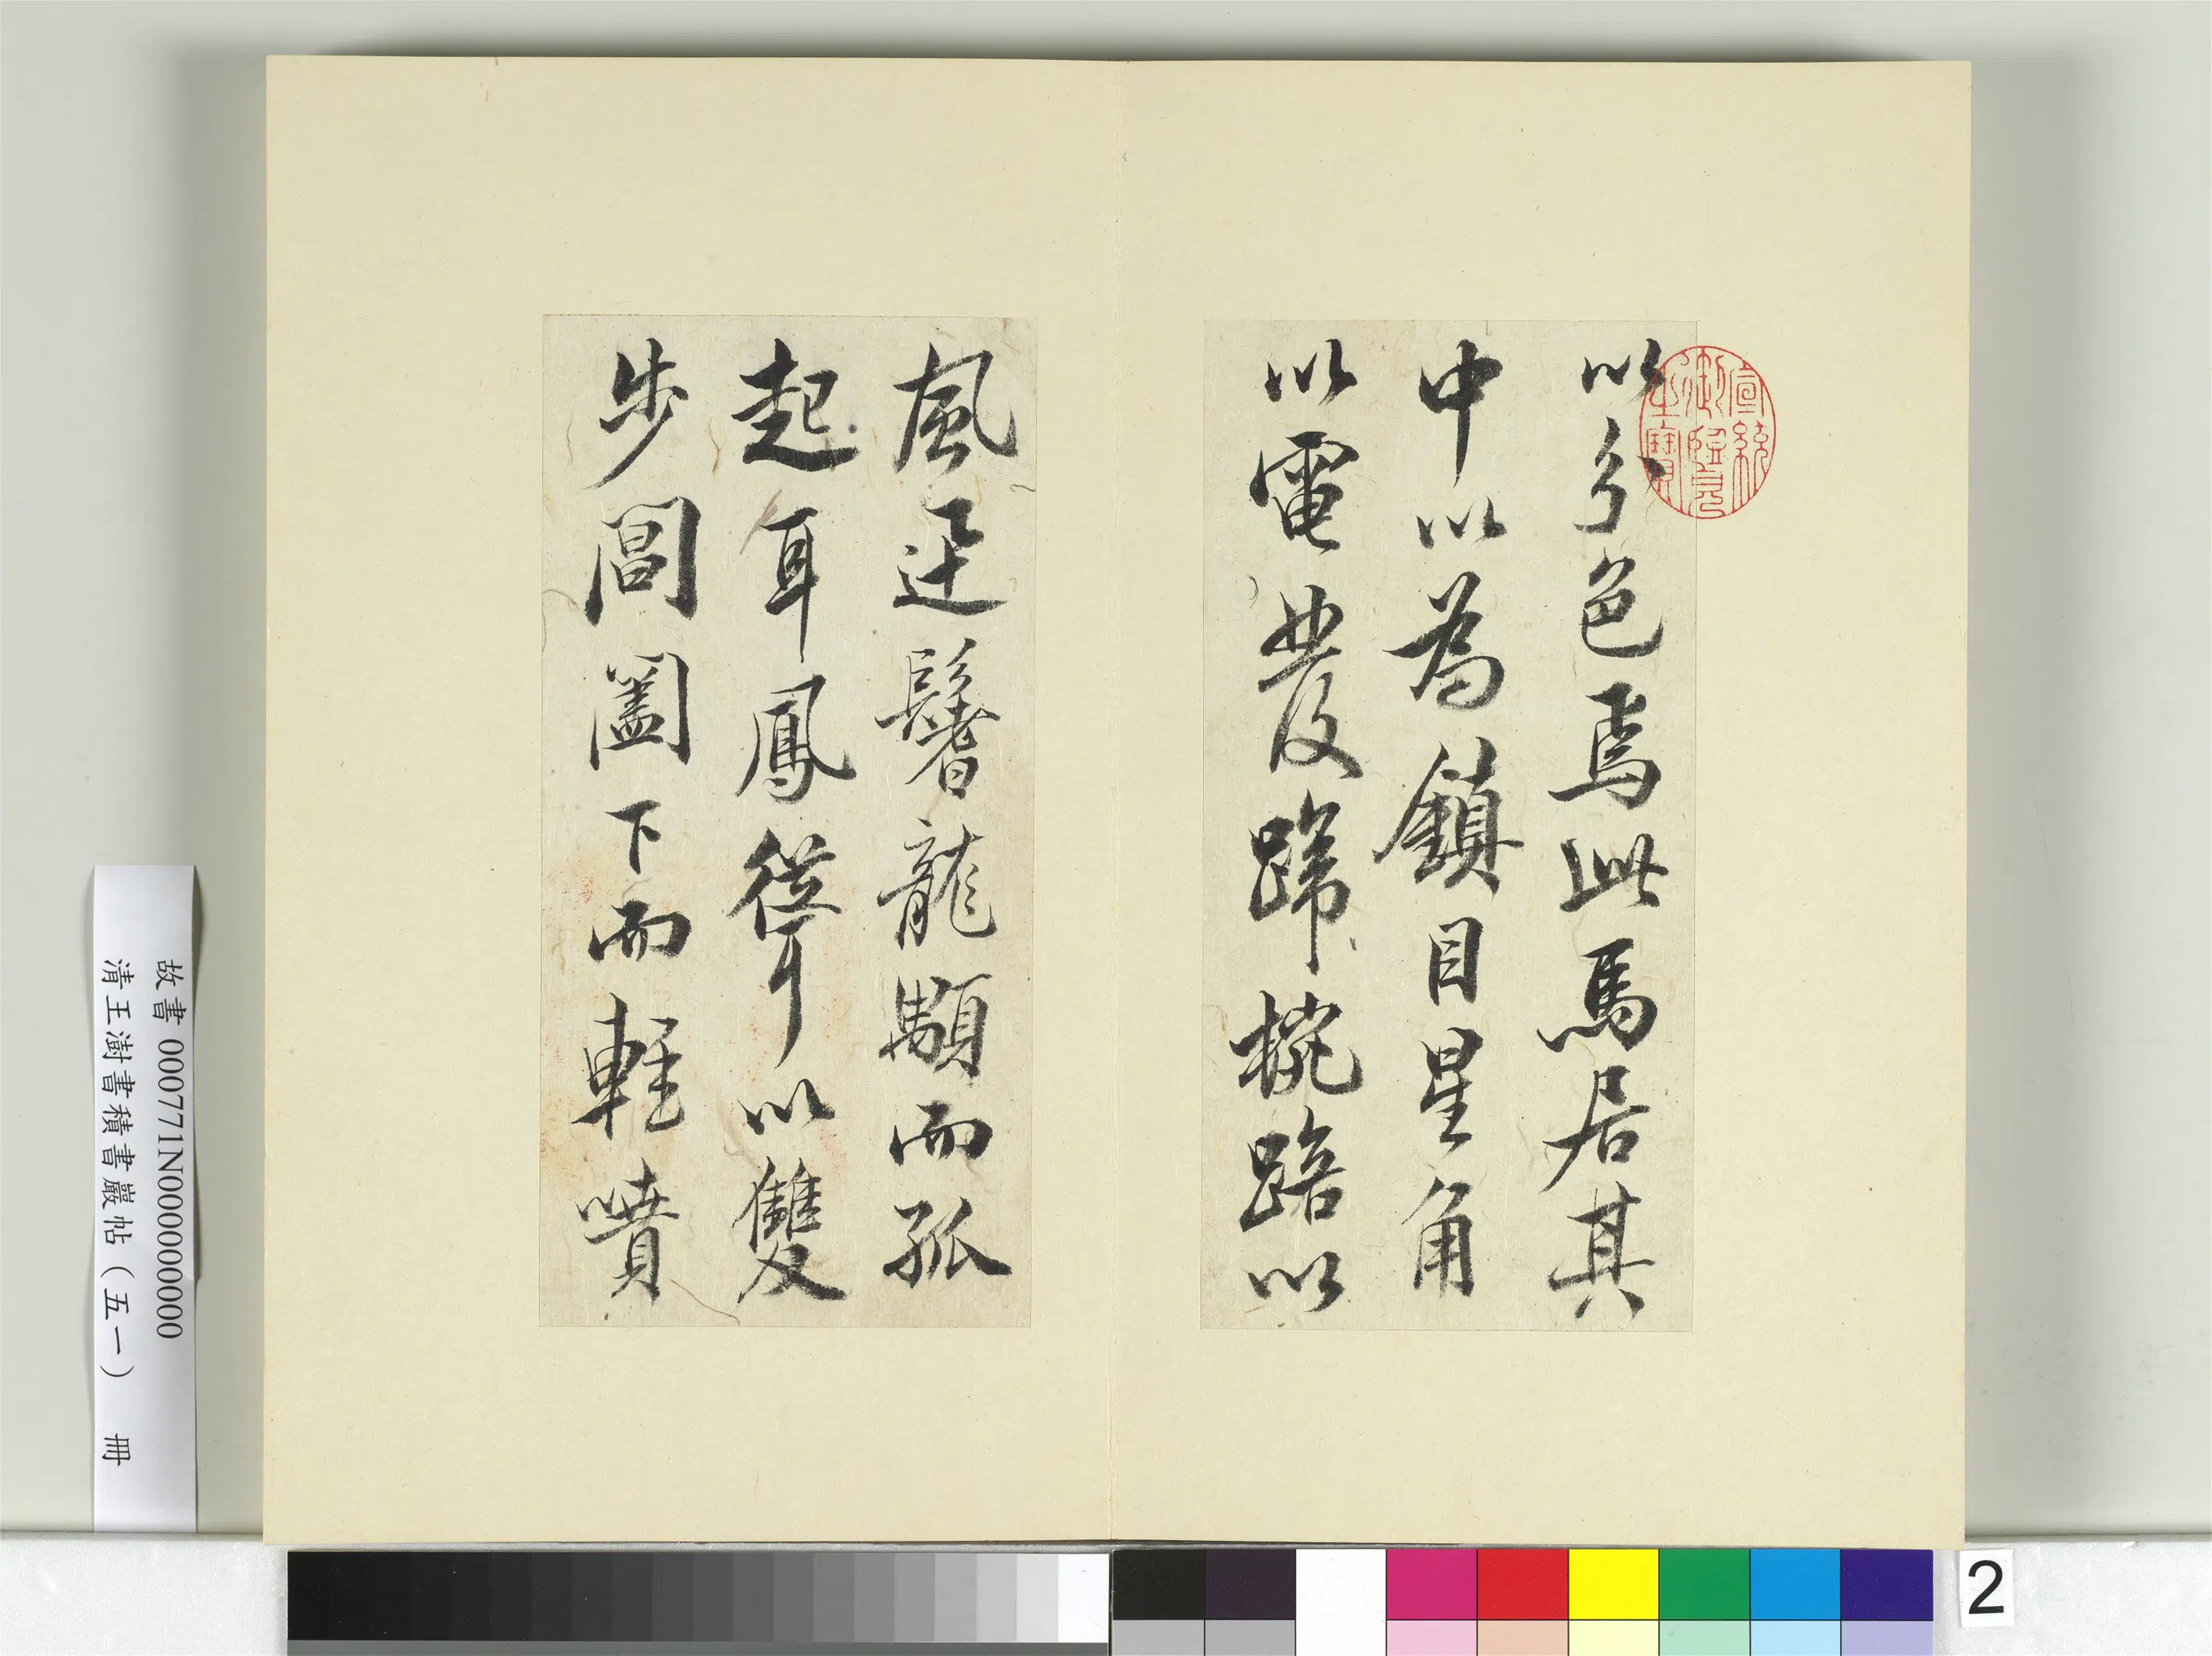 以分色焉此馬居其
中以為鎮目星角
以電發蹄椀踣以
風迅鬐龍顒而孤
起耳鳳聳以雙
步閶闔下而輕噴
宣統
御覽
之寶
故書 000771N000000000
清王澍書積書巖帖（五一） 冊
2